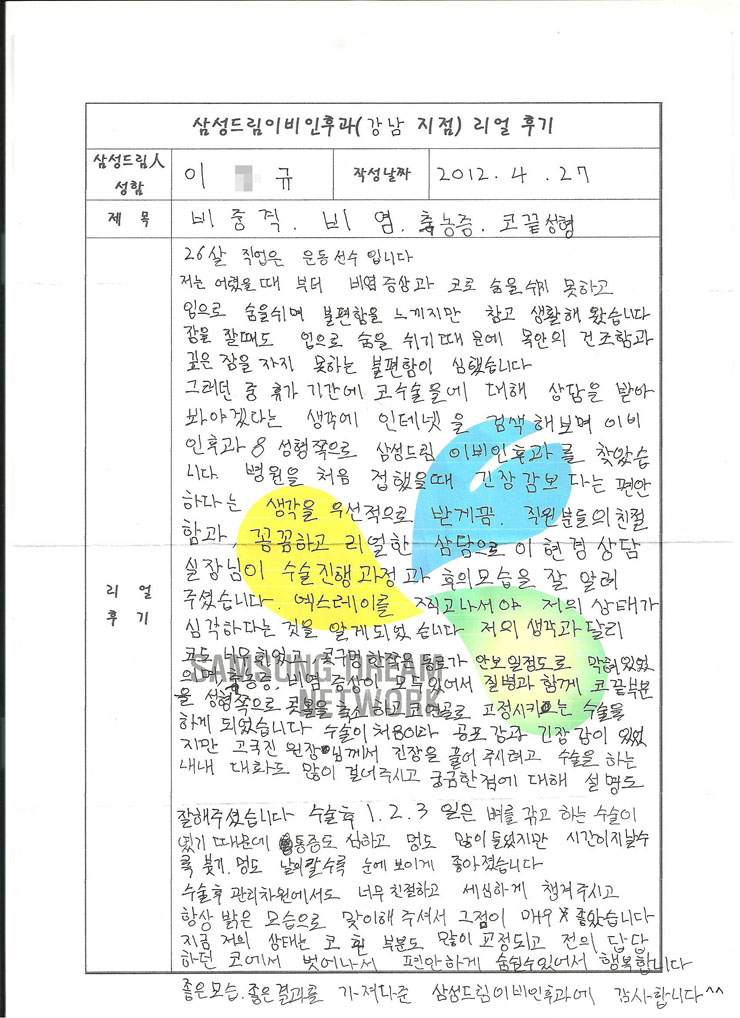 삼성드림이비인후과(강남 지점) 리얼 후기
삼성드림人 성함
이 규
작성날짜
2012. 4. 27
제 목
비중격. 비염. 축농증. 코끝성형
리 얼 후 기
26살 직업은 운동선수 입니다
저는 어렸을때 부터 비염증상과 코로 숨을 쉬지 못하고
입으로 숨을쉬며 불편함을 느끼지만 참고 생활해 왔습니다
잠을 잘때도 입으로 숨을 쉬기때문에 목안의 건조함과
깊은 잠을 자지 못하는 불편함이 심했습니다
그러던 중 휴가 기간에 코수술에 대해 상담을 받아
봐야겠다는 생각에 인터넷을 검색해보며 이비
인후과 & 성형쪽으로 삼성드림 이비인후과를 찾았습
니다. 병원을 처음 접했을때 긴장감보다는 편안
하다는 생각을 우선적으로 받게끔. 직원분들의 친절
함과, 꼼꼼하고 리얼한 상담으로 이현경상담
실장님이 수술진행과정과 후의모습을 잘 알려
주셨습니다. 엑스레이를 찍고나서야 저의 상태가
심각하다는 것을 알게되었습니다 저의 생각과달리
코도 너무 휘었고 콧구멍한쪽은 통로가 안보일정도로 막혀있었
으며, 축농증, 비염 증상이 모두있어서 질병과 함께 코끝부분
을 성형쪽으로 콧볼을 축소하고 코연골로 고정시키는 수술을
하게 되었습니다 수술이 처음이라 공포감과 긴장감이 있었
지만 고국진 원장님께서 긴장을 풀어 주시려고 수술을 하는
내내 대화도 많이 걸어주시고 궁금한점에 대해 설명도
잘해주셨습니다 수술후 1.2.3 일은 뼈를 깎고 하는 수술이
였기 때문에 통증도 심하고 멍도 많이들었지만 시간이지날수
록 붓기.멍도 날이갈수록 눈에 보이게 좋아졌습니다
수술후 관리차원에서도 너무 친절하고 세심하게 챙겨주시고
항상 밝은 모습으로 맞이해 주셔서 그점이 매우 좋았습니다
지금 저의 상태는 코 휜 부분도 많이 교정되고 전의 답답
하던 코에서 벗어나서 편안하게 숨쉴수있어서 행복합니다
좋은모습.좋은결과를 가져다준 삼성드림이비인후과에 감사합니다^^
SAMSUNG DREAM
NETWORK